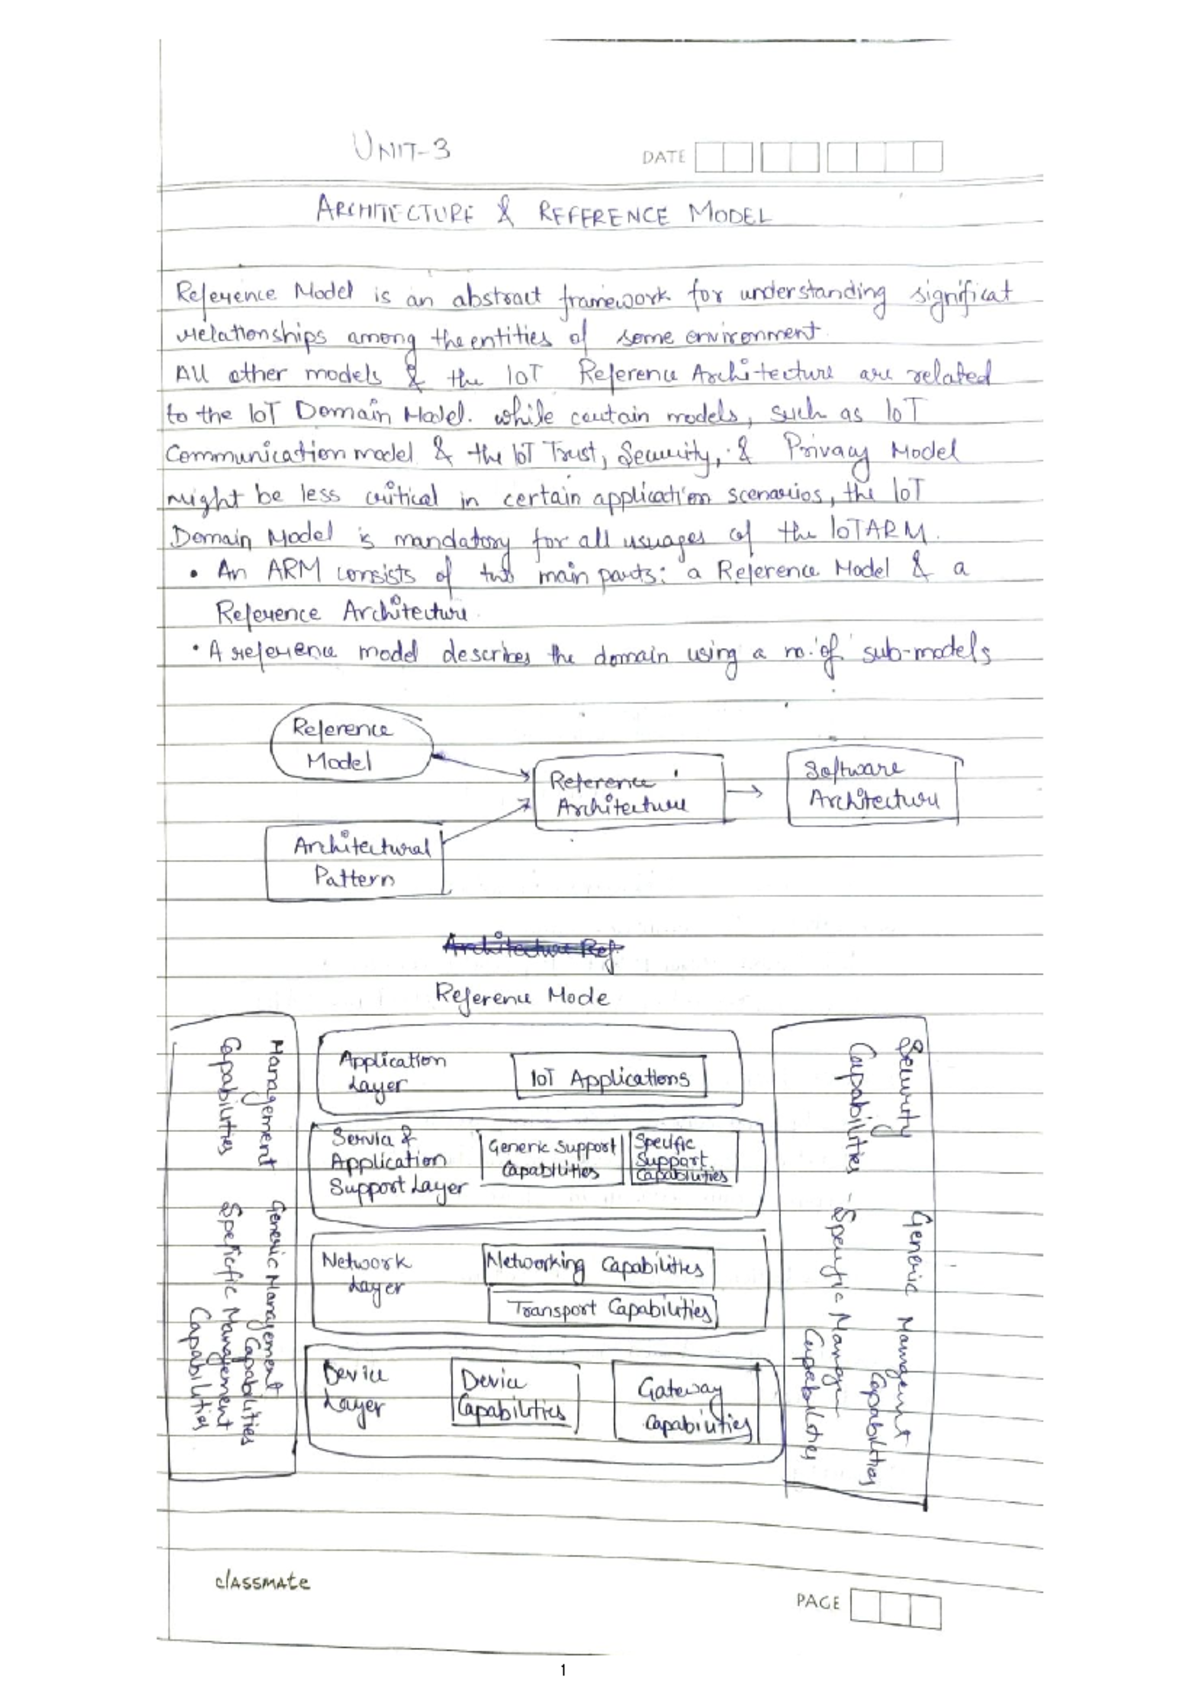 UNIT-3
DATE
ARCHITECTURE & REFERENCE MODEL
Reference Model is an abstract framework for understanding significat
relationships among the entities of some environment.
All other models & the IoT Reference Architecture are related
to the IoT Domain Model. while certain models, such as IoT
Communication model & the IoT Trust, Security, & Privacy Model
might be less critical in certain application scenarios, the IoT
Domain Model is mandatory for all usuages of the IoTARM.
• An ARM consists of two main parts: a Reference Model & a
Reference Architecture.
• A reference model describes the domain using a no. of sub-models
Reference
Model
Reference
Architecture
Software
Architecture
Architectural
Pattern
Architecture Ref
Reference Mode
Management
Capabilities
Generic Management
Capabilities
Speficfic Management
Capabilities
Application
Layer
IoT Applications
Service &
Application
Support Layer
Generic Support
Capabilities
Specific
Support
Capabilities
Network
Layer
Networking Capabilities
Transport Capabilities
Device
Layer
Device
Capabilities
Gateway
Capabilities
Security
Capabilities -
Generic Management
Capabilities
Specific
Capabilities
classmate
PAGE
1